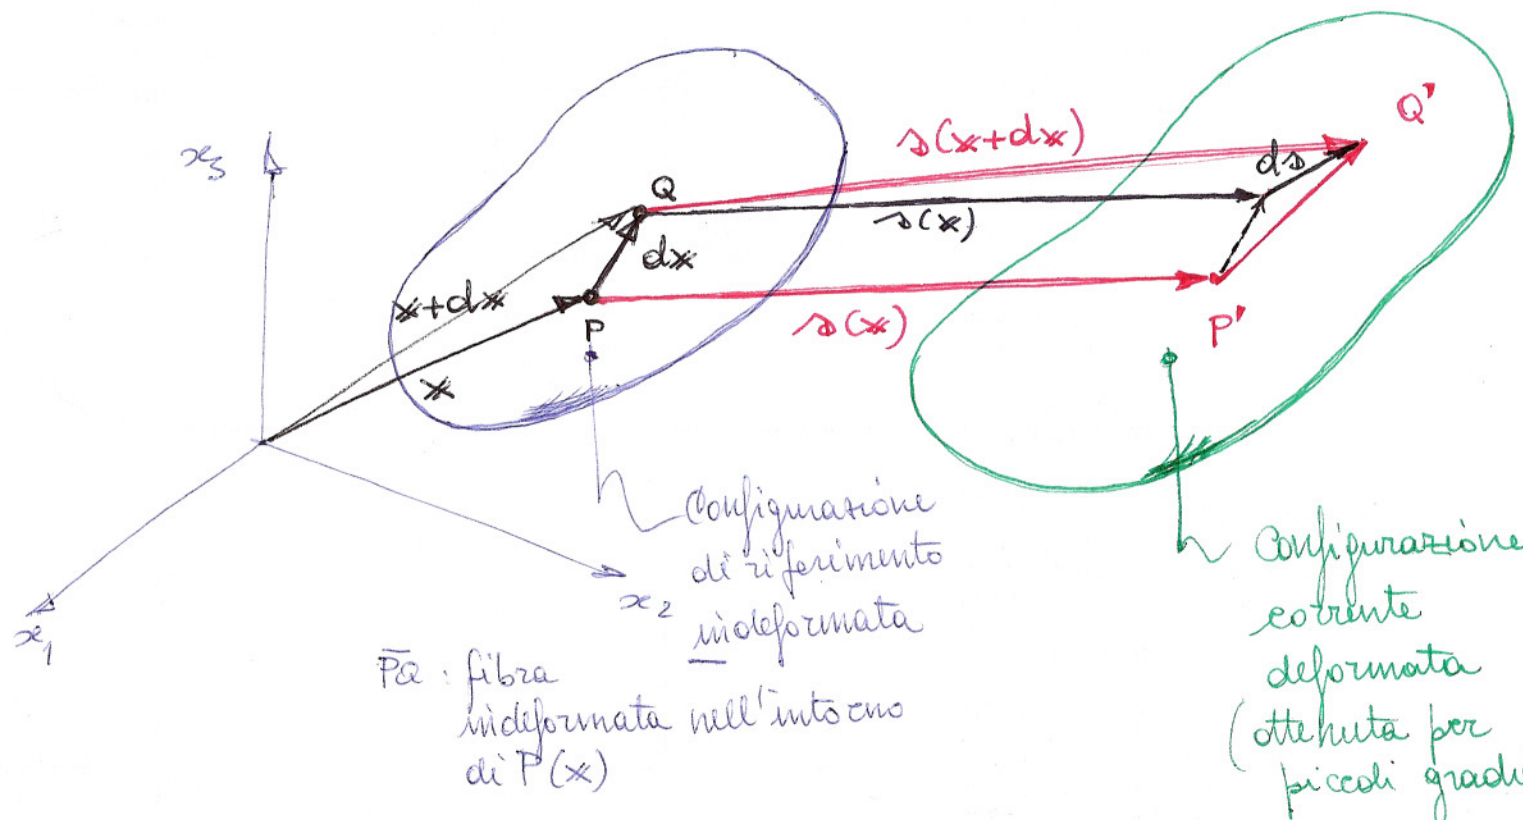 x₃
Q'
s(x+dx)
ds
Q
s(x)
dx
x+dx
P
s(x)
P'
x
Configurazione
di riferimento
indeformata
x₂
x₁
PQ : fibra
indeformata nell'intorno
di P(x)
Configurazione
corrente
deformata
(ottenuta per
piccoli gradi